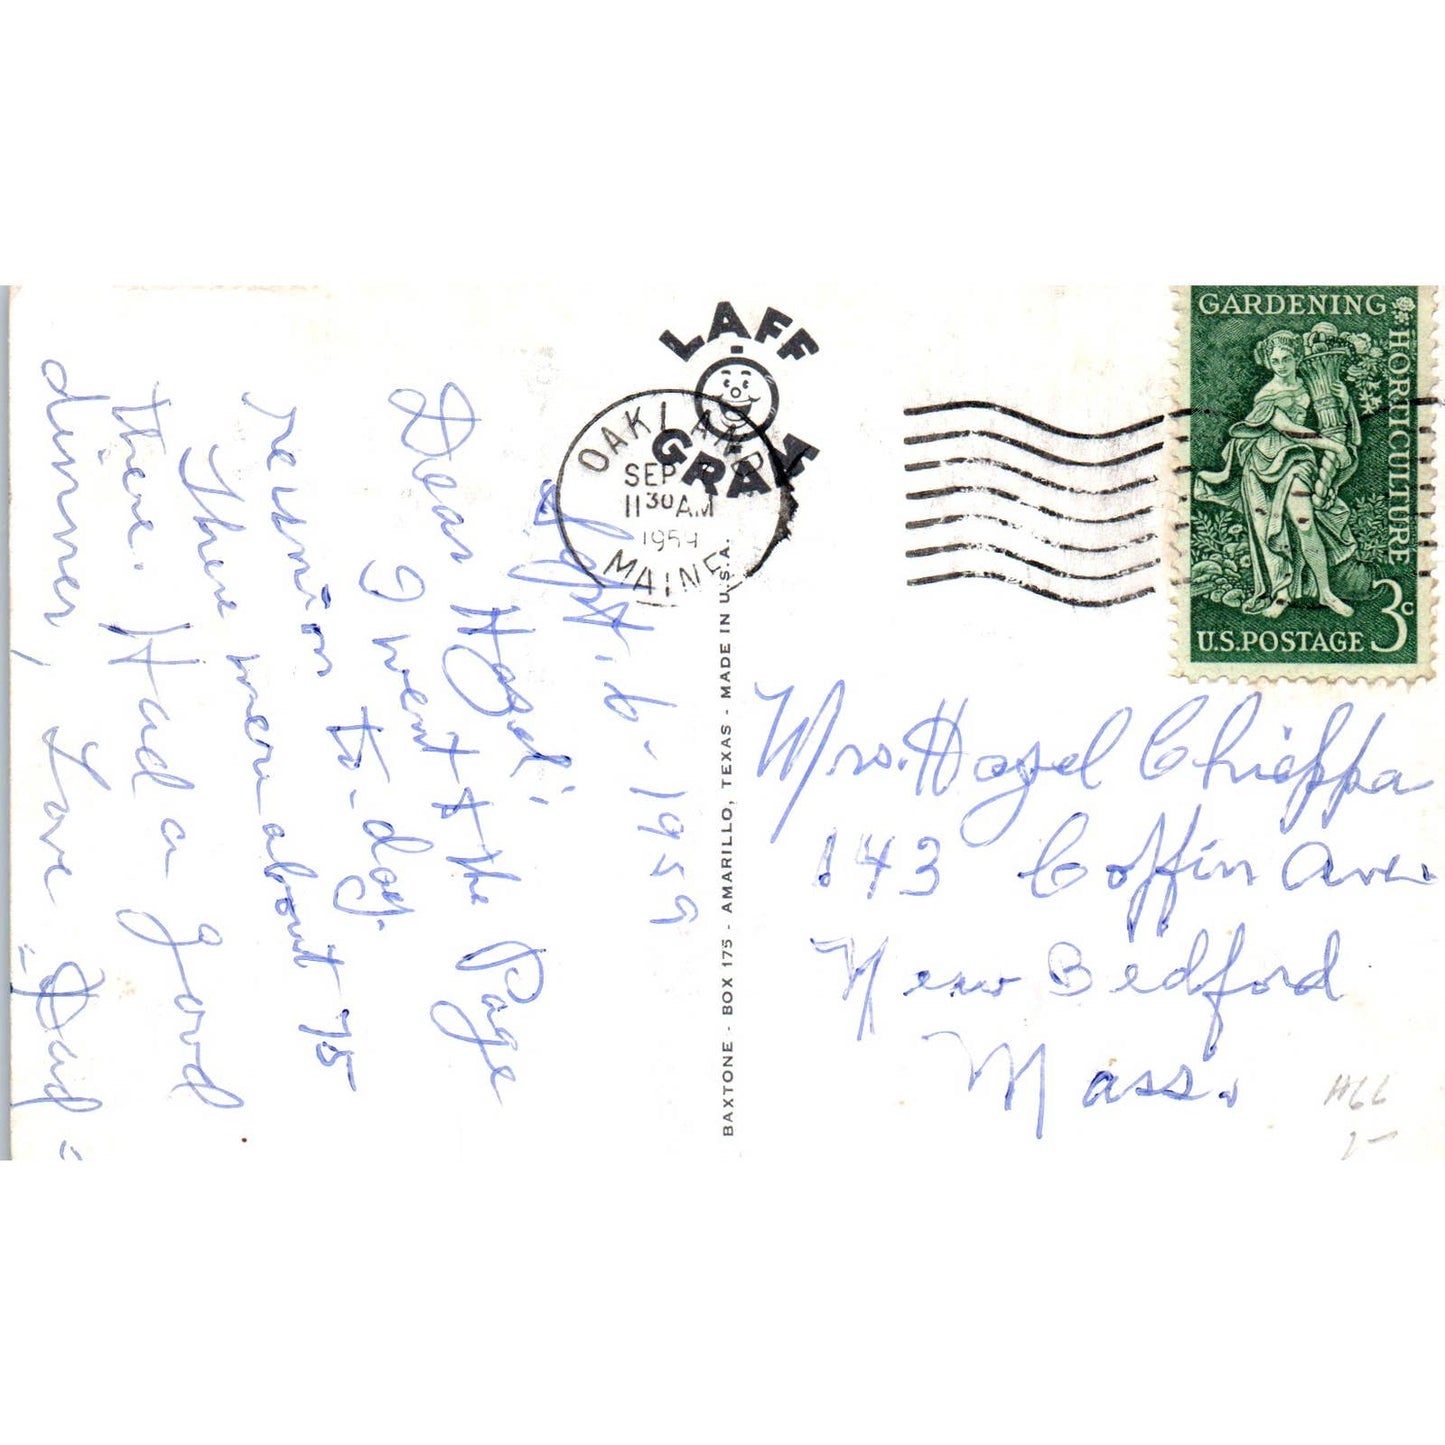 Sept. 6-1959
Dear Hazel:
I went to the Page
reunion to-day.
There were about 75
there. Had a good
dinner, Love = Dad =
LAFF
GRAM
OAKLAND
SEP
11 30 AM
1959
MAINE
BAXTONE - BOX 175 - AMARILLO, TEXAS - MADE IN U.S.A.
GARDENING
HORTICULTURE
U.S. POSTAGE 3c
Mrs. Hazel Chieppa
143 Coffin Ave.
New Bedford
Mass.